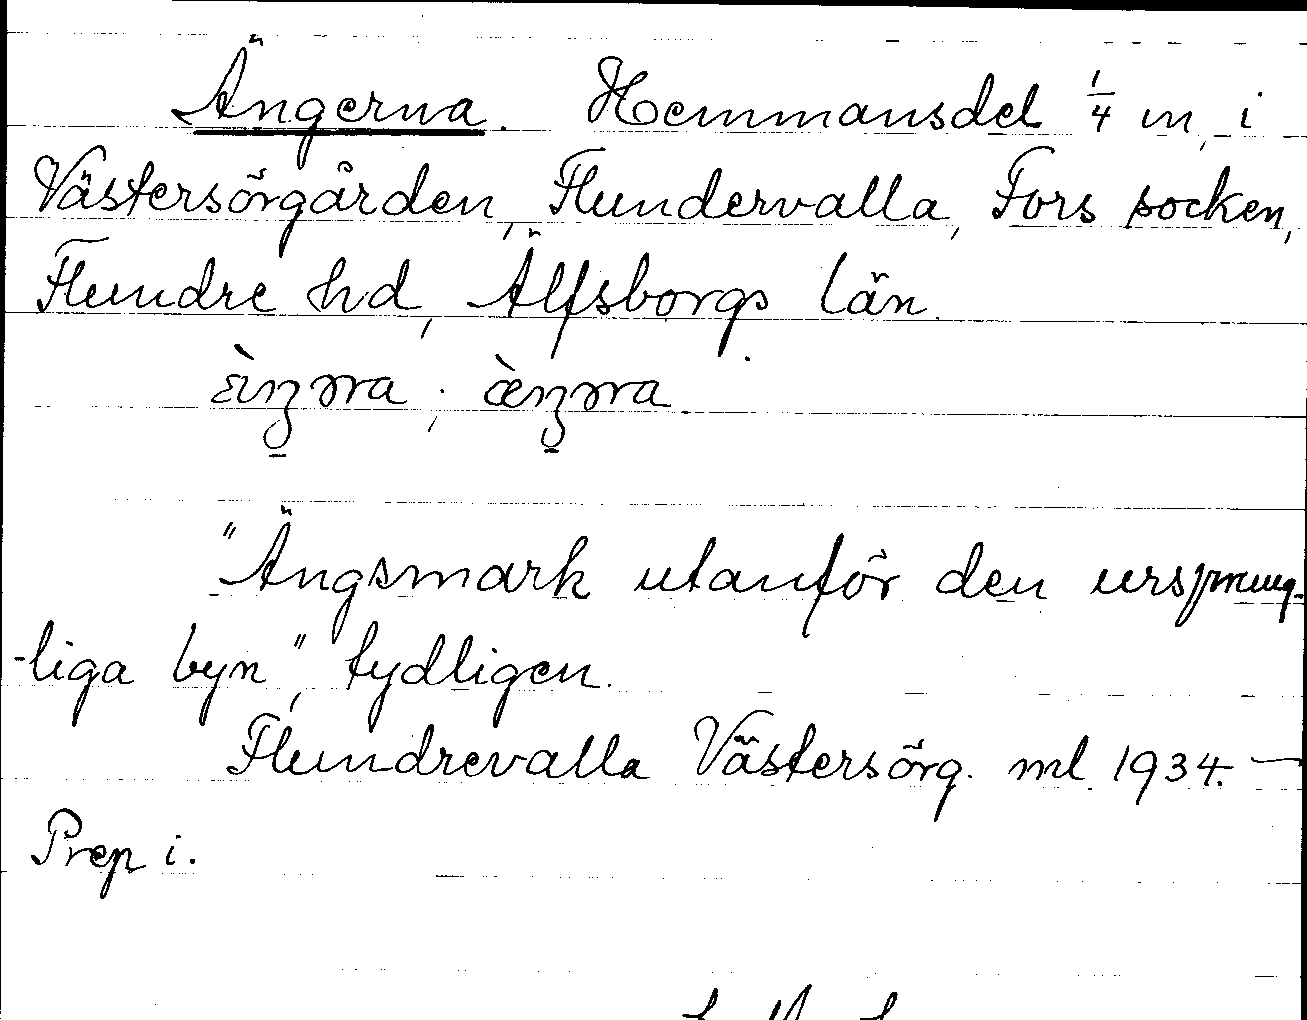 Ängerna. Hemmansdel 1/4 m, i
Västersörgården, Flundervalla, Fors socken,
Flundre hd, Älfsborgs län.
"Ängsmark utanför den ursprung-
-liga byn", tydligen.
Flundrevalla Västersörg. ml 1934. —
Prep i.